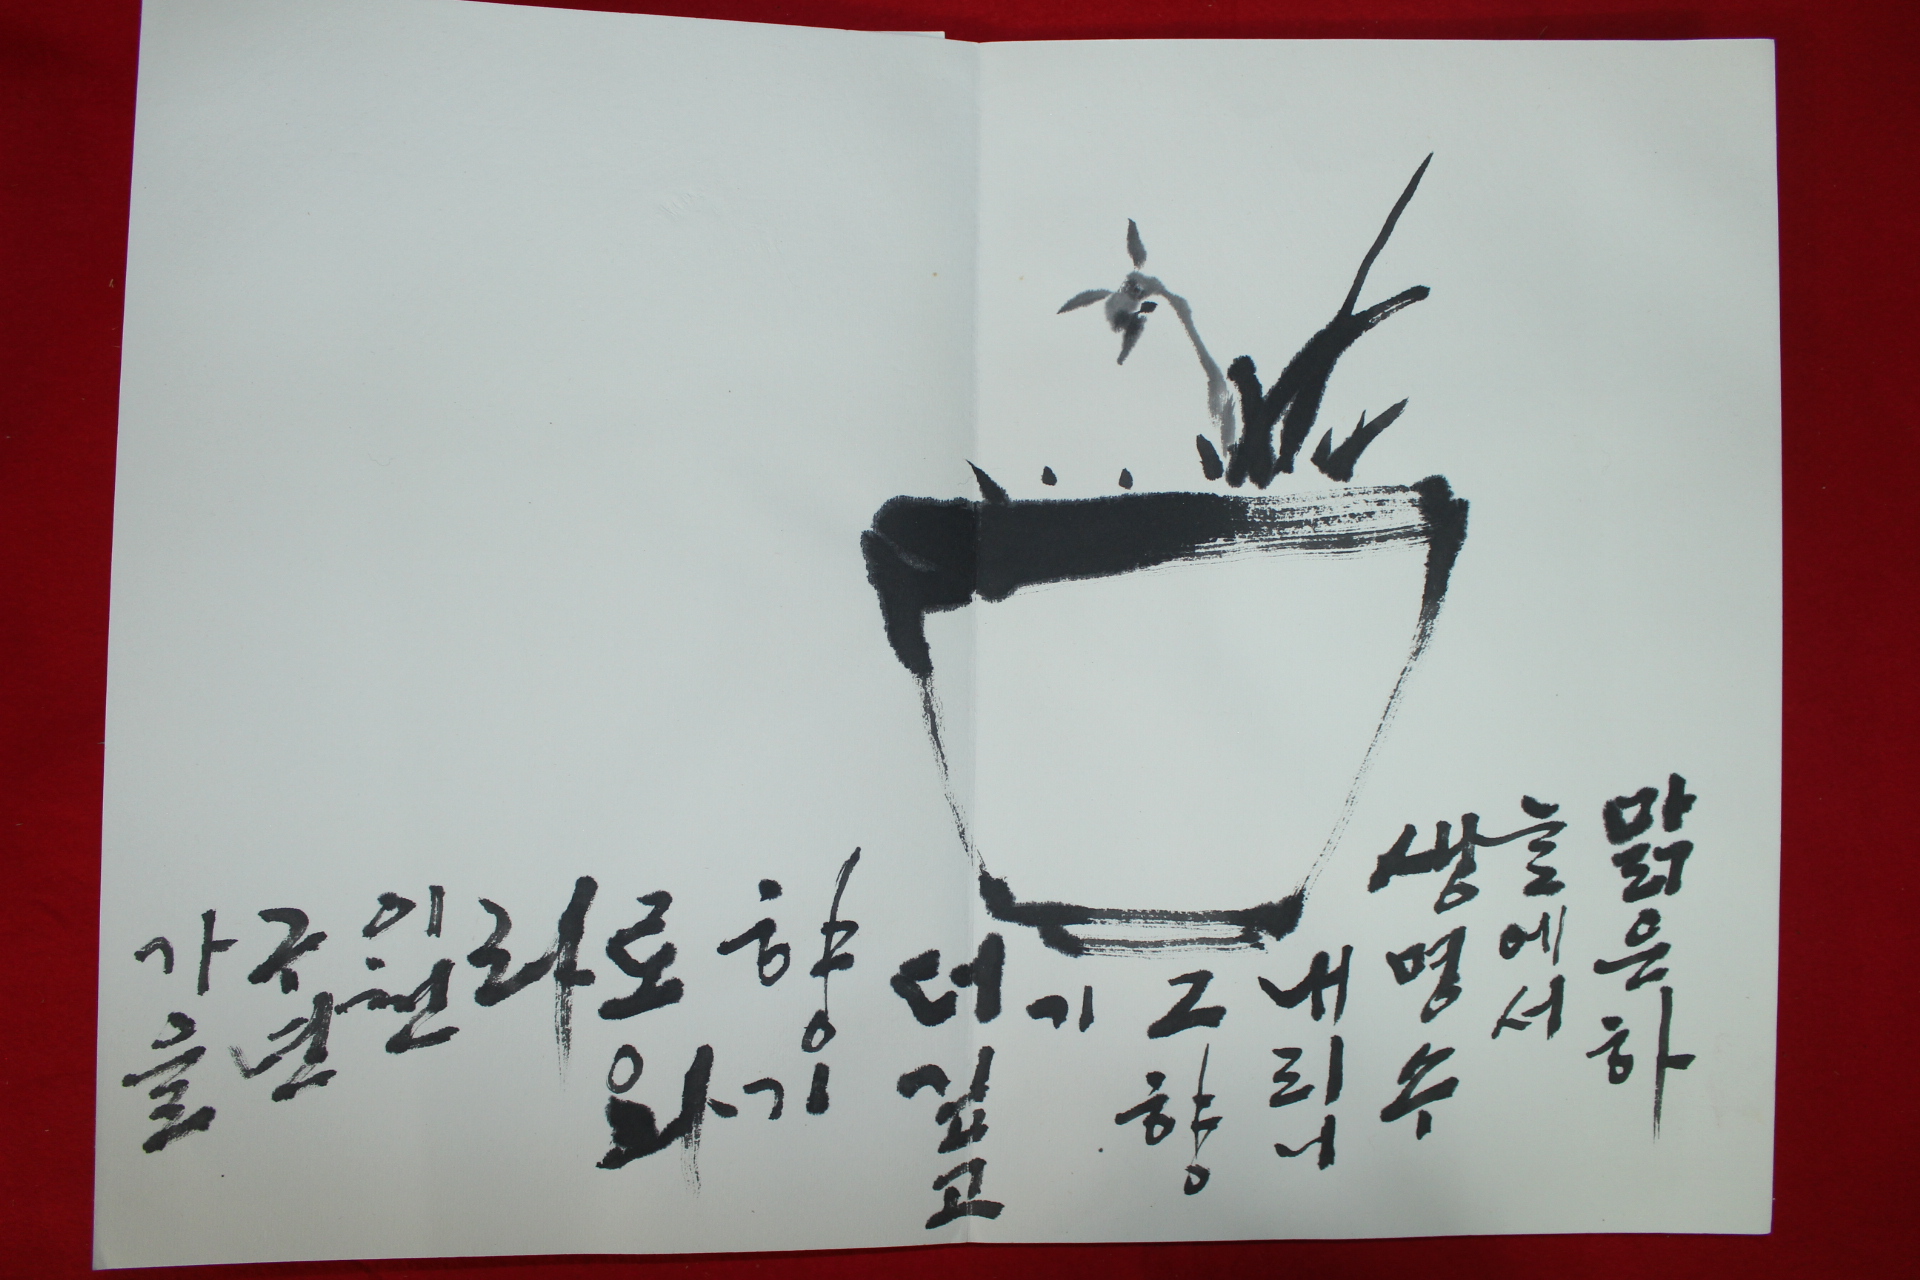 맑은하
늘에서
생명수
내리니
그향
기
더깊고
향기
로와
라
이천
구년
가을